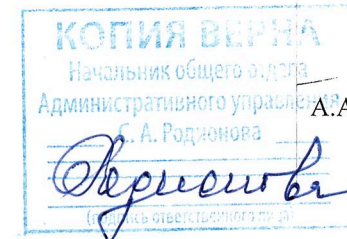 КОПИЯ ВЕРНА
Начальник общего отдела
Административного управления
А.А
С. А. Родионова
Родионова
(подпись ответственного лица)